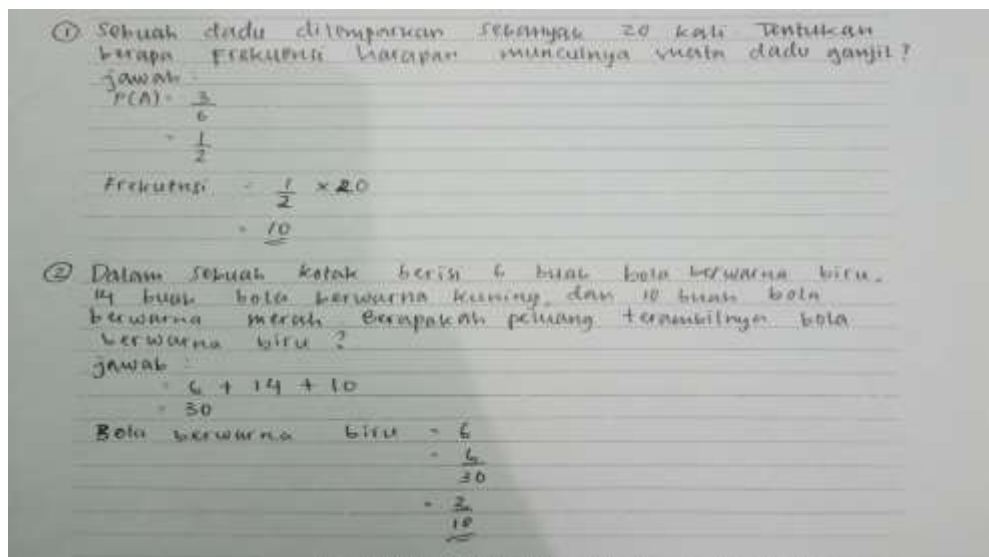 ① Sebuah dadu dilemparkan sebanyak 20 kali Tentukan
berapa Frekuensi harapan munculnya mata dadu ganjil?
jawab :
P(A) = 3/6
= 1/2
Frekuensi = 1/2 × 20
= 10
② Dalam sebuah kotak berisi 6 buah bola berwarna biru.
14 buah bola berwarna kuning, dan 10 buah bola
berwarna merah Berapakah peluang terambilnya bola
berwarna biru ?
jawab :
= 6 + 14 + 10
= 30
Bola berwarna biru = 6
= 6/30
= 2/10